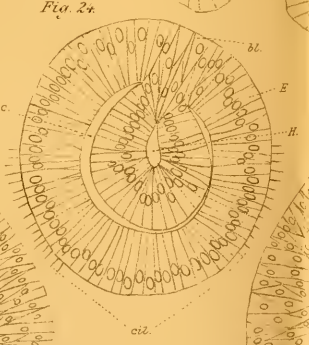 Fig. 24.
bl.
E
c.
H.
cil.